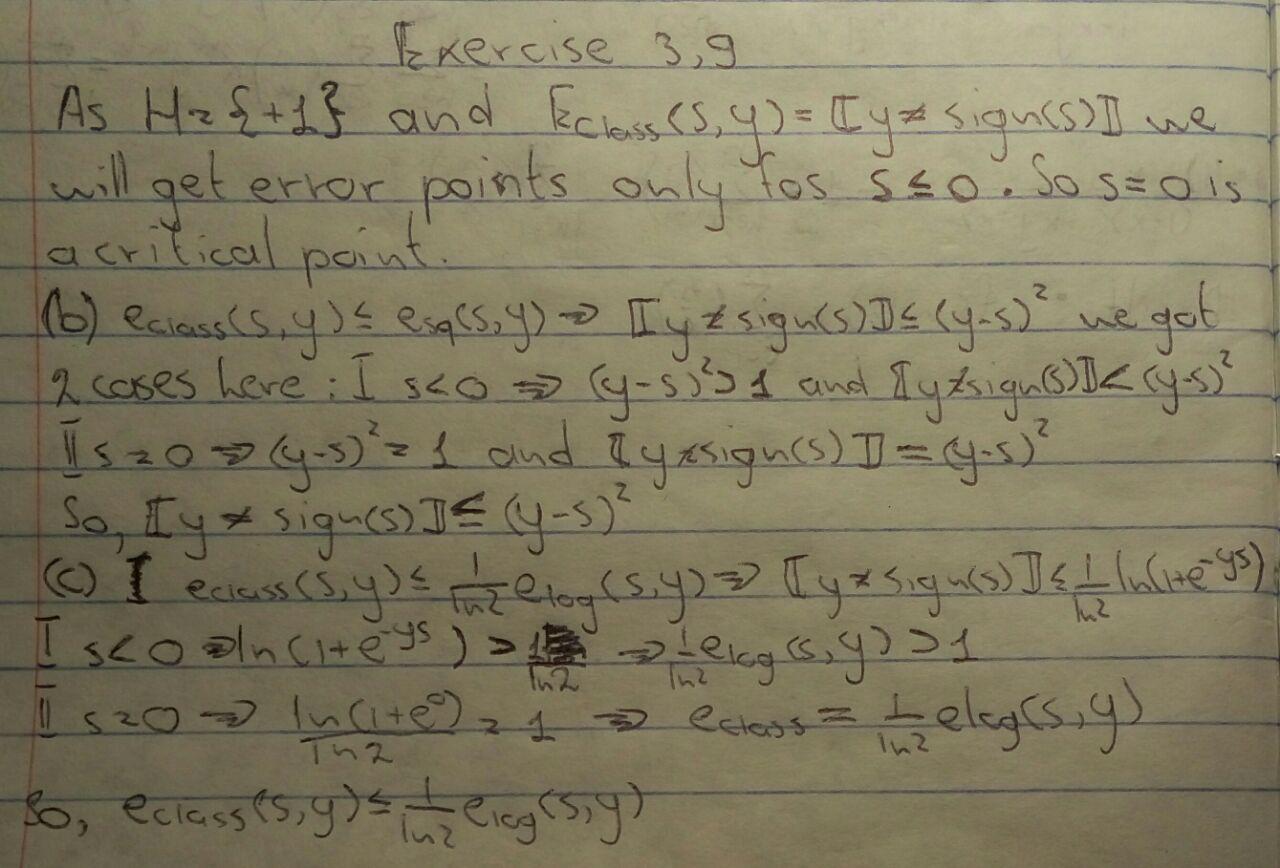 Exercise 3,9
As H={+1} and Eclass(s,y)=⟦y≠sign(s)⟧ we
will get error points only fos s≤0. So s=0 is
a critical point.
(b) eclass(s,y)≤ esq(s,y) ⇒ ⟦y≠sign(s)⟧≤(y-s)² we got
2 cases here: I s<0 ⇒ (y-s)²>1 and ⟦y≠sign(s)⟧<(y-s)²
II s=0 ⇒ (y-s)²=1 and ⟦y≠sign(s)⟧=(y-s)²
So, ⟦y≠sign(s)⟧≤(y-s)²
(c) eclass(s,y)≤ 1/ln2 elog(s,y) ⇒ ⟦y≠sign(s)⟧≤ 1/ln2 ln(1+e^-ys)
I s<0 ⇒ ln(1+e^-ys) > 1/ln2 ⇒ 1/ln2 elog(s,y)>1
II s=0 ⇒ ln(1+e^0)/ln2 = 1 ⇒ eclass = 1/ln2 elog(s,y)
So, eclass(s,y)≤ 1/ln2 elog(s,y)